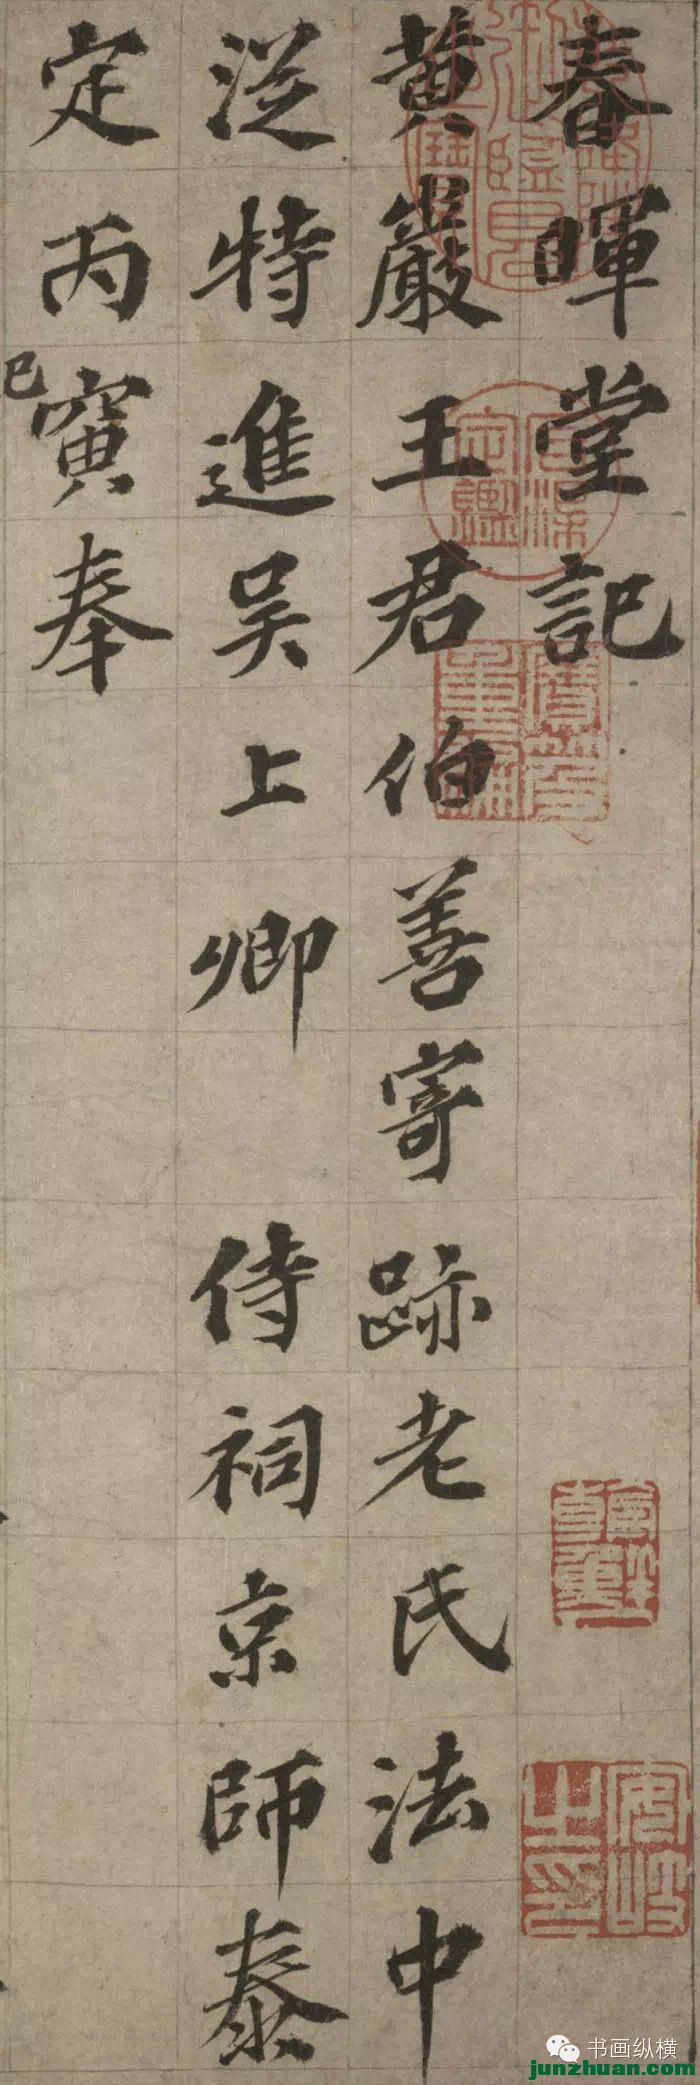 春暉堂記
黄巖王君伯善寄跡老氏法中
從特進吴上卿 侍祠京師泰
定丙寅奉
已
书画纵横
junzhuan.com